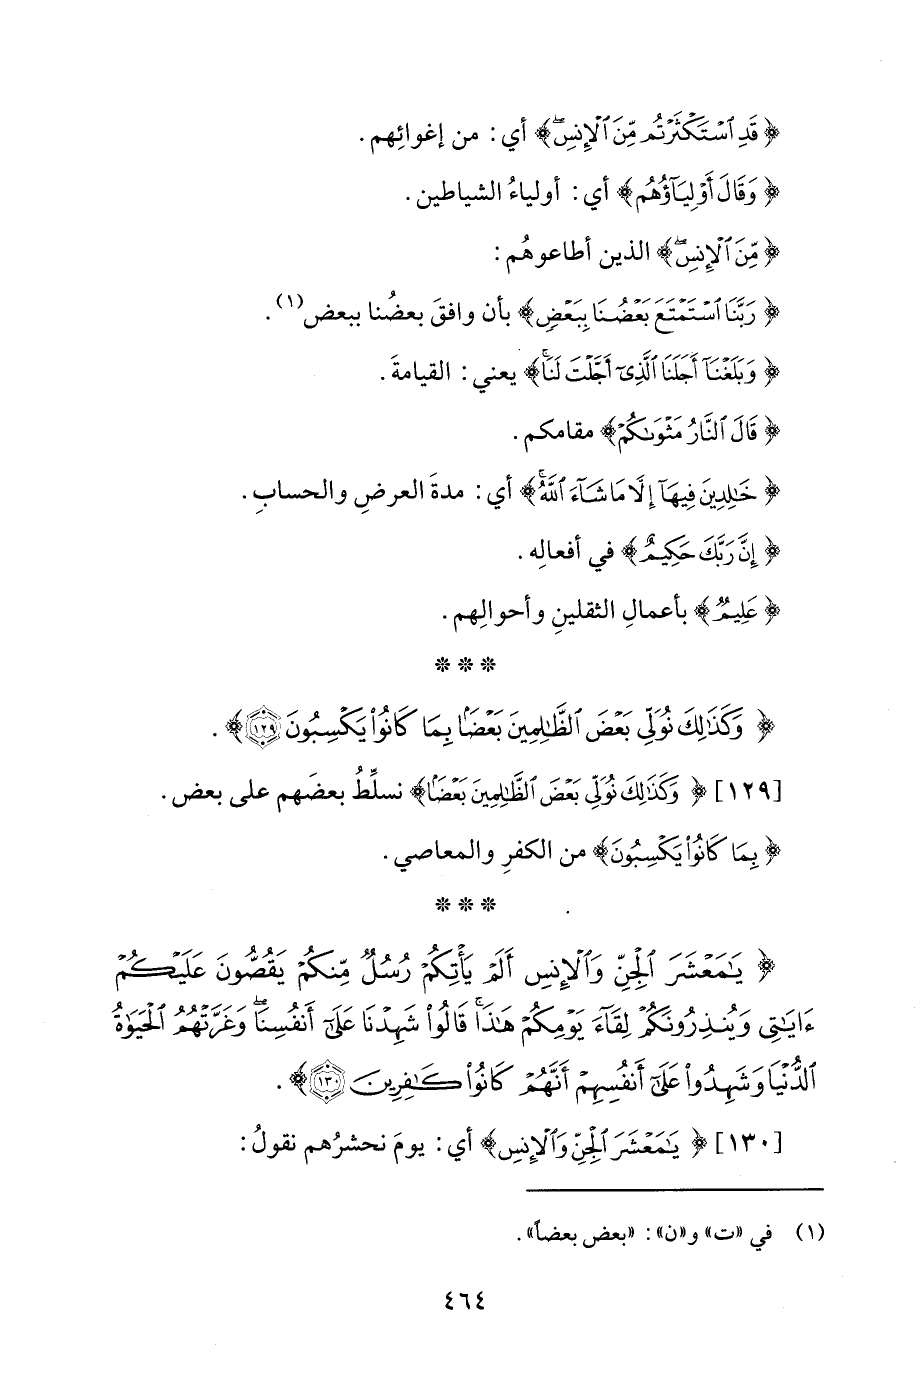 ﴿ قَدِ ٱسْتَكْثَرْتُم مِّنَ ٱلْإِنسِ ۖ﴾ أي: من إغوائِهم.
﴿ وَقَالَ أَوْلِيَآؤُهُم﴾ أي: أولياءُ الشياطين.
﴿ مِّنَ ٱلْإِنسِ ۖ﴾ الذين أطاعوهُم:
﴿ رَبَّنَا ٱسْتَمْتَعَ بَعْضُنَا بِبَعْضٍ﴾ بأن وافقَ بعضُنا ببعض(١).
﴿ وَبَلَغْنَآ أَجَلَنَا ٱلَّذِىٓ أَجَّلْتَ لَنَا ۚ﴾ يعني: القيامةَ.
﴿ قَالَ ٱلنَّارُ مَثْوَىٰكُمْ﴾ مقامكم.
﴿ خَٰلِدِينَ فِيهَآ إِلَّا مَا شَآءَ ٱللَّهُ ۚ﴾ أي: مدةَ العرضِ والحسابِ.
﴿ إِنَّ رَبَّكَ حَكِيمٌ﴾ في أفعالِه.
﴿ عَلِيمٌ﴾ بأعمالِ الثقلينِ وأحوالِهم.
* * *
﴿ وَكَذَٰلِكَ نُوَلِّى بَعْضَ ٱلظَّٰلِمِينَ بَعْضًۢا بِمَا كَانُوا۟ يَكْسِبُونَ ١٢٩﴾.
[١٢٩] ﴿ وَكَذَٰلِكَ نُوَلِّى بَعْضَ ٱلظَّٰلِمِينَ بَعْضًۢا﴾ نسلِّطُ بعضَهم على بعض.
﴿ بِمَا كَانُوا۟ يَكْسِبُونَ﴾ من الكفرِ والمعاصي.
* * *
﴿ يَٰمَعْشَرَ ٱلْجِنِّ وَٱلْإِنسِ أَلَمْ يَأْتِكُمْ رُسُلٌ مِّنكُمْ يَقُصُّونَ عَلَيْكُمْ
ءَايَٰتِى وَيُنذِرُونَكُمْ لِقَآءَ يَوْمِكُمْ هَٰذَا ۚ قَالُوا۟ شَهِدْنَا عَلَىٰٓ أَنفُسِنَا ۖ وَغَرَّتْهُمُ ٱلْحَيَوٰةُ
ٱلدُّنْيَا وَشَهِدُوا۟ عَلَىٰٓ أَنفُسِهِمْ أَنَّهُمْ كَانُوا۟ كَٰفِرِينَ ١٣٠﴾.
[١٣٠] ﴿ يَٰمَعْشَرَ ٱلْجِنِّ وَٱلْإِنسِ﴾ أي: يومَ نحشرُهم نقولُ:
(١) في «ت» و«ن»: «بعض بعضاً».
٤٦٤